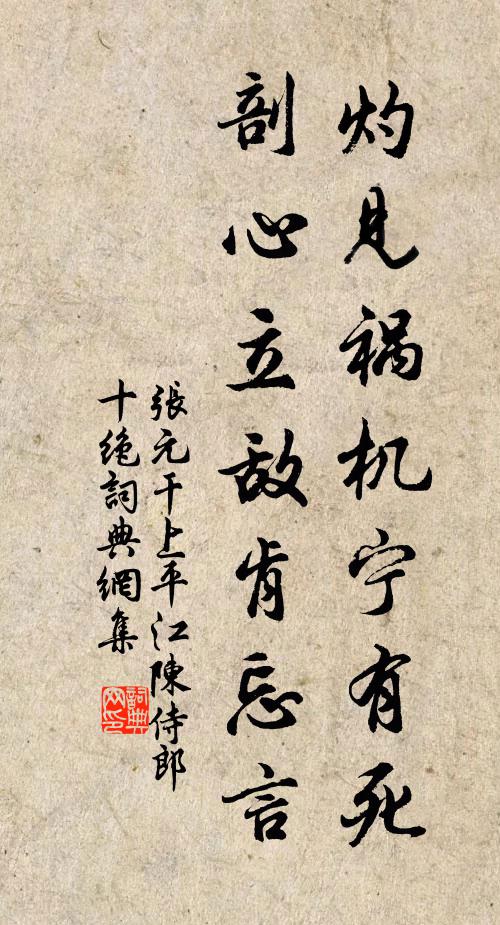 灼见祸机宁有死
剖心立敌肯忘言
張元干上平江陳侍郎
十绝詞典網集
詞典
网印